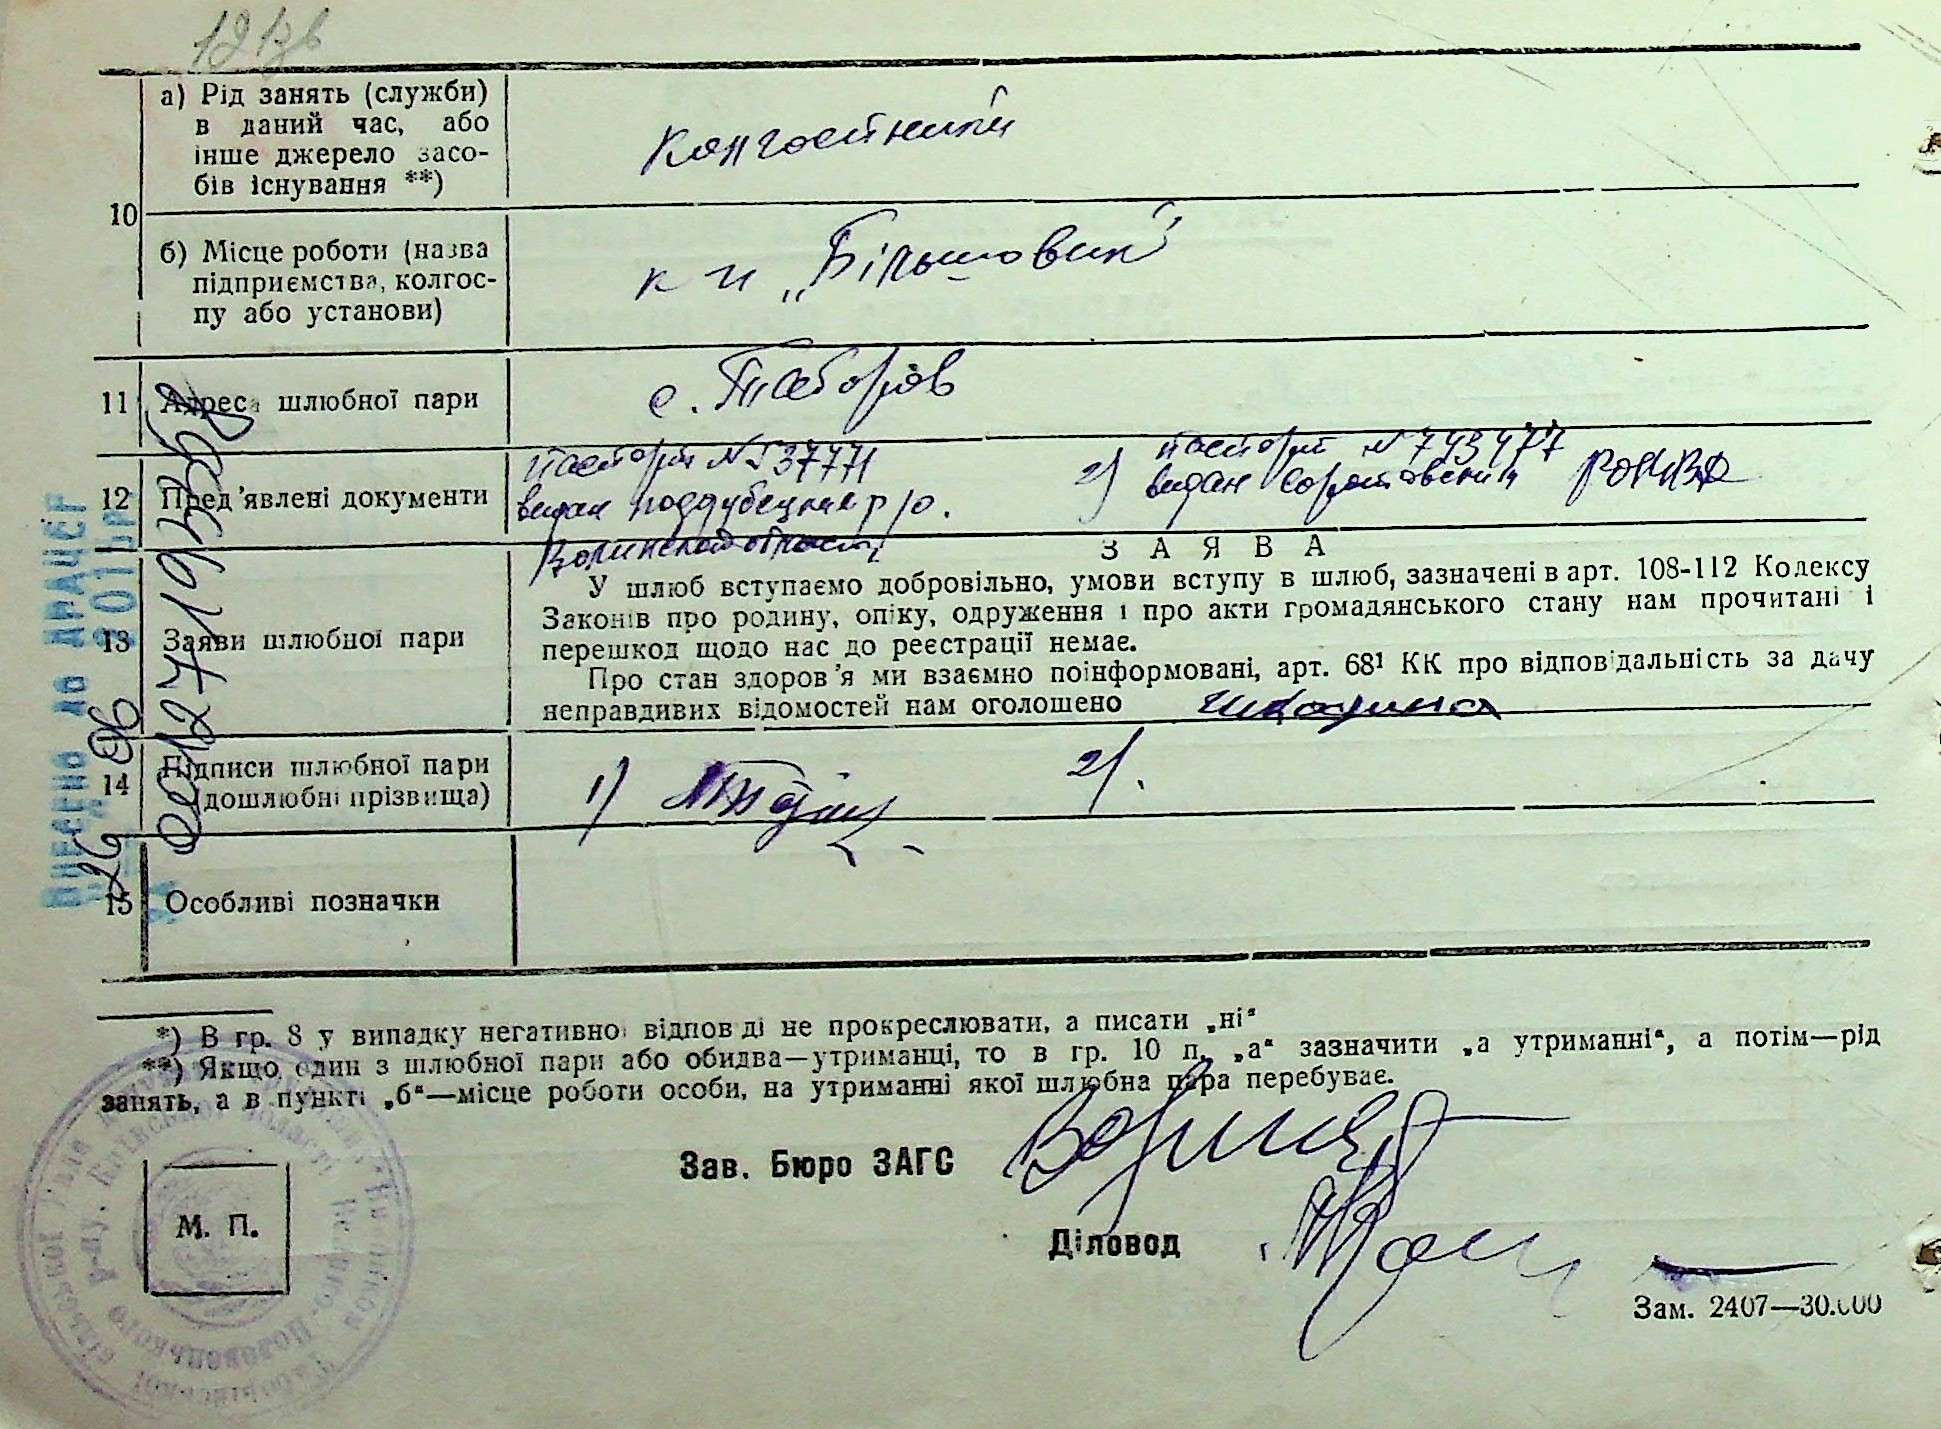 10
а) Рід занять (служби)
в даний час, або
інше джерело засо-
бів існування **)
колгоспники
б) Місце роботи (назва
підприємства, колгос-
пу або установи)
к-п „Більшовик"
11 Адреса шлюбної пари
с. Таборов
12 Пред'явлені документи
паспорт №537771
видан поддубецким р/о.
Волинской области
2) паспорт № 743477
видан РОНКВД
13 Заяви шлюбної пари
ЗАЯВА
У шлюб вступаємо добровільно, умови вступу в шлюб, зазначені в арт. 108-112 Кодексу
Законів про родину, опіку, одруження і про акти громадянського стану нам прочитані і
перешкод щодо нас до реєстрації немає.
Про стан здоров'я ми взаємно поінформовані, арт. 68¹ КК про відповідальність за дачу
неправдивих відомостей нам оголошено
14 Підписи шлюбної пари
(дошлюбні прізвища)
1)
2)
15 Особливі позначки
ВНЕСЕНО ДО ДРАЦСГ
00127193358
*) В гр. 8 у випадку негативної відповіді не прокреслювати, а писати „ні"
**) Якщо один з шлюбної пари або обидва—утриманці, то в гр. 10 п. „а" зазначити „а утриманні", а потім—рід
занять, а в пункті „б"—місце роботи особи, на утриманні якої шлюбна пара перебуває.
Зав. Бюро ЗАГС
М. П.
Діловод
Зам. 2407—30.000